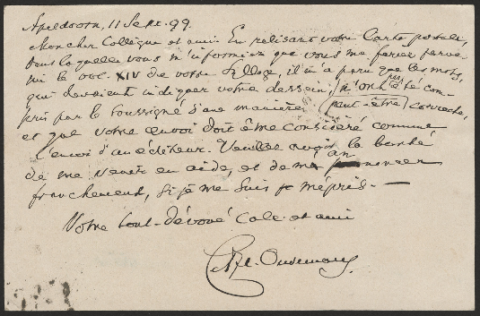 Apeldoorn, 11 Sept. 99.
Mon cher Collègue et ami. En relisant votre Carte postale,
dans laquelle vous m'informiez que vous me feriez parve-
nir le voc. XIV de votre Sylloge, il m'a paru que les mots,
qui devaient indiquer votre dessein, n'ont pas été com-
pris par le soussigné d'une manière (peut-être) correcte,
et que votre envoi doit être considéré comme
l'envoi d'un éditeur. Veuillez avoir la bonté
de me venir en aide, et de m'an noncer
franchement, si je me suis je mépris. —
Votre tout-dévoué Coll. et ami